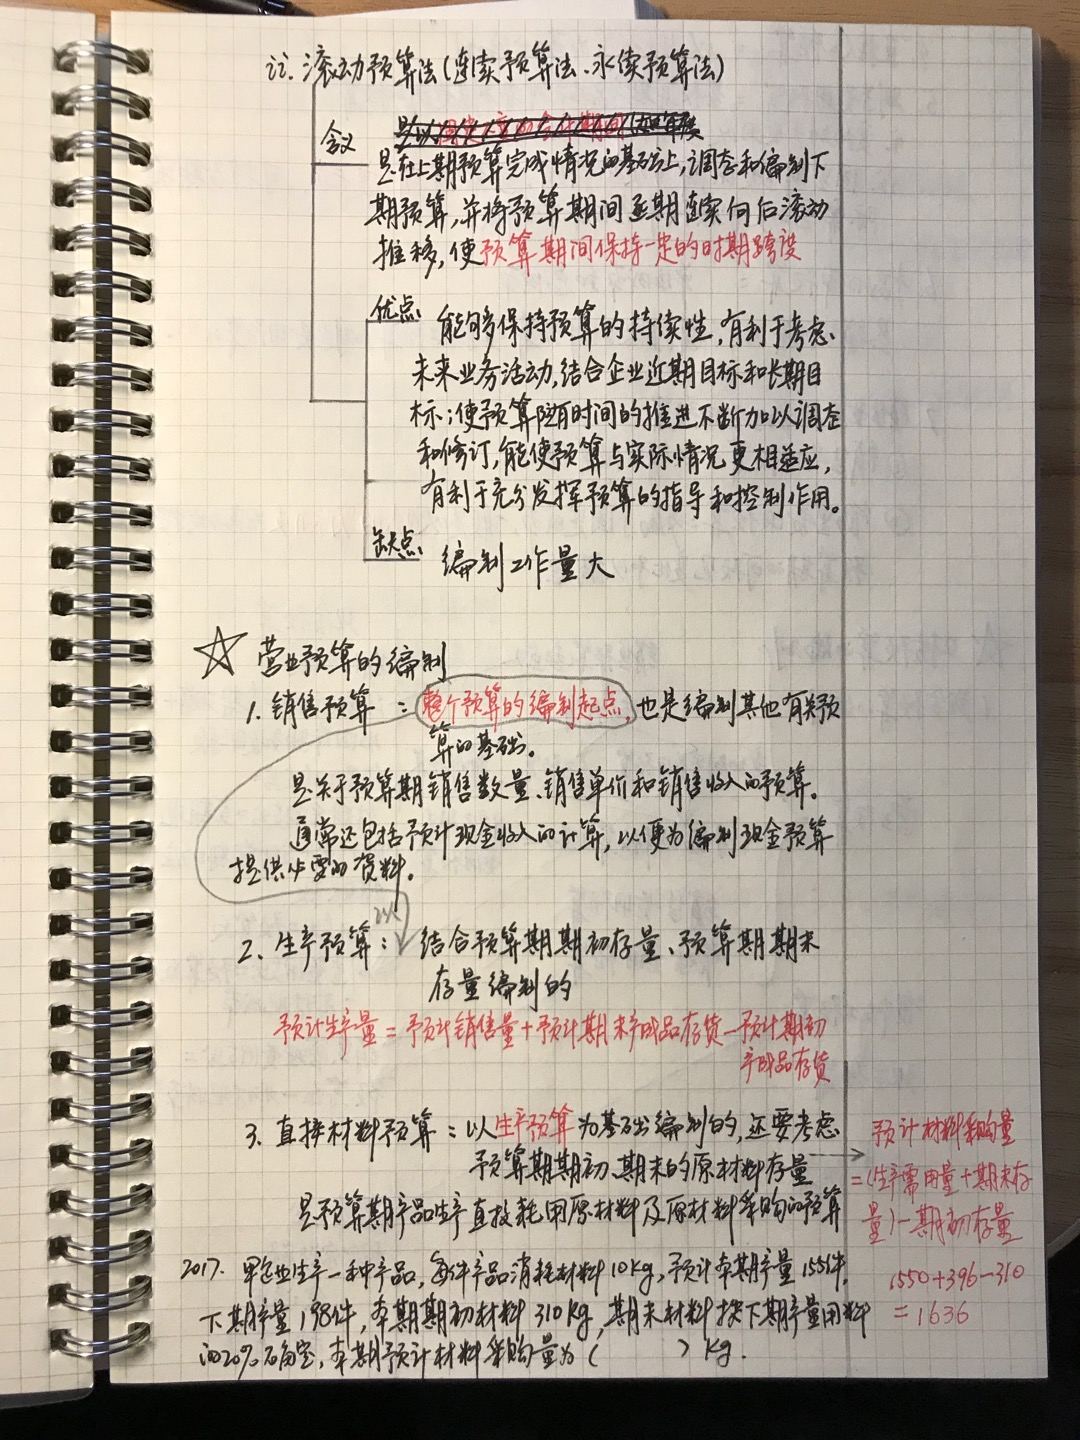 注.滚动预算法(连续预算法、永续预算法)
含义
是在上期预算完成情况的基础上,调态和编制下
期预算,并将预算期间逐期连实向后滚动
推移,使预算期间保持一定的时期跨度
优点:能够多保持预算的持续性,有利于考虑
未来业务活动,结合企业近期目标和长期目
标;使预算随时间的推进不断加以调态
和修订,能使预算与实际情况更相适应,
有利于充分发挥预算的指导和控制作用。
缺点:编制工作量大
☆营业预算的编制
1.销售预算:整个预算的编制起点,也是编制其他有关预
算的基础。
是关于预算期销售数量、销售单价和销售收入的预算。
通常还包括预计现金收入的计算,以便为编制现金预算
提供必要的资料。
以
2、生产预算:结合预算期期初存量、预算期期末
存量编制的
预计生产量=预计销售量+预计期末产成品存货-预计期初
产成品存货
3.直接材料预算:以生产预算为基础编制的,还要考虑
预算期期初、期末的原材料存量
是预算期产品生产直接耗用原材料及原材料采购的预算
预计材料采购量
=(生产需用量+期末存
量)-期初存量
2017.甲企业生产一种产品,每件产品消耗材料10kg,预计本期产量155件,
下期产量198件,本期期初材料310kg,期末材料按下期产量用料
的20%确定,本期预计材料采购量为( )kg.
1550+396-310
=1636